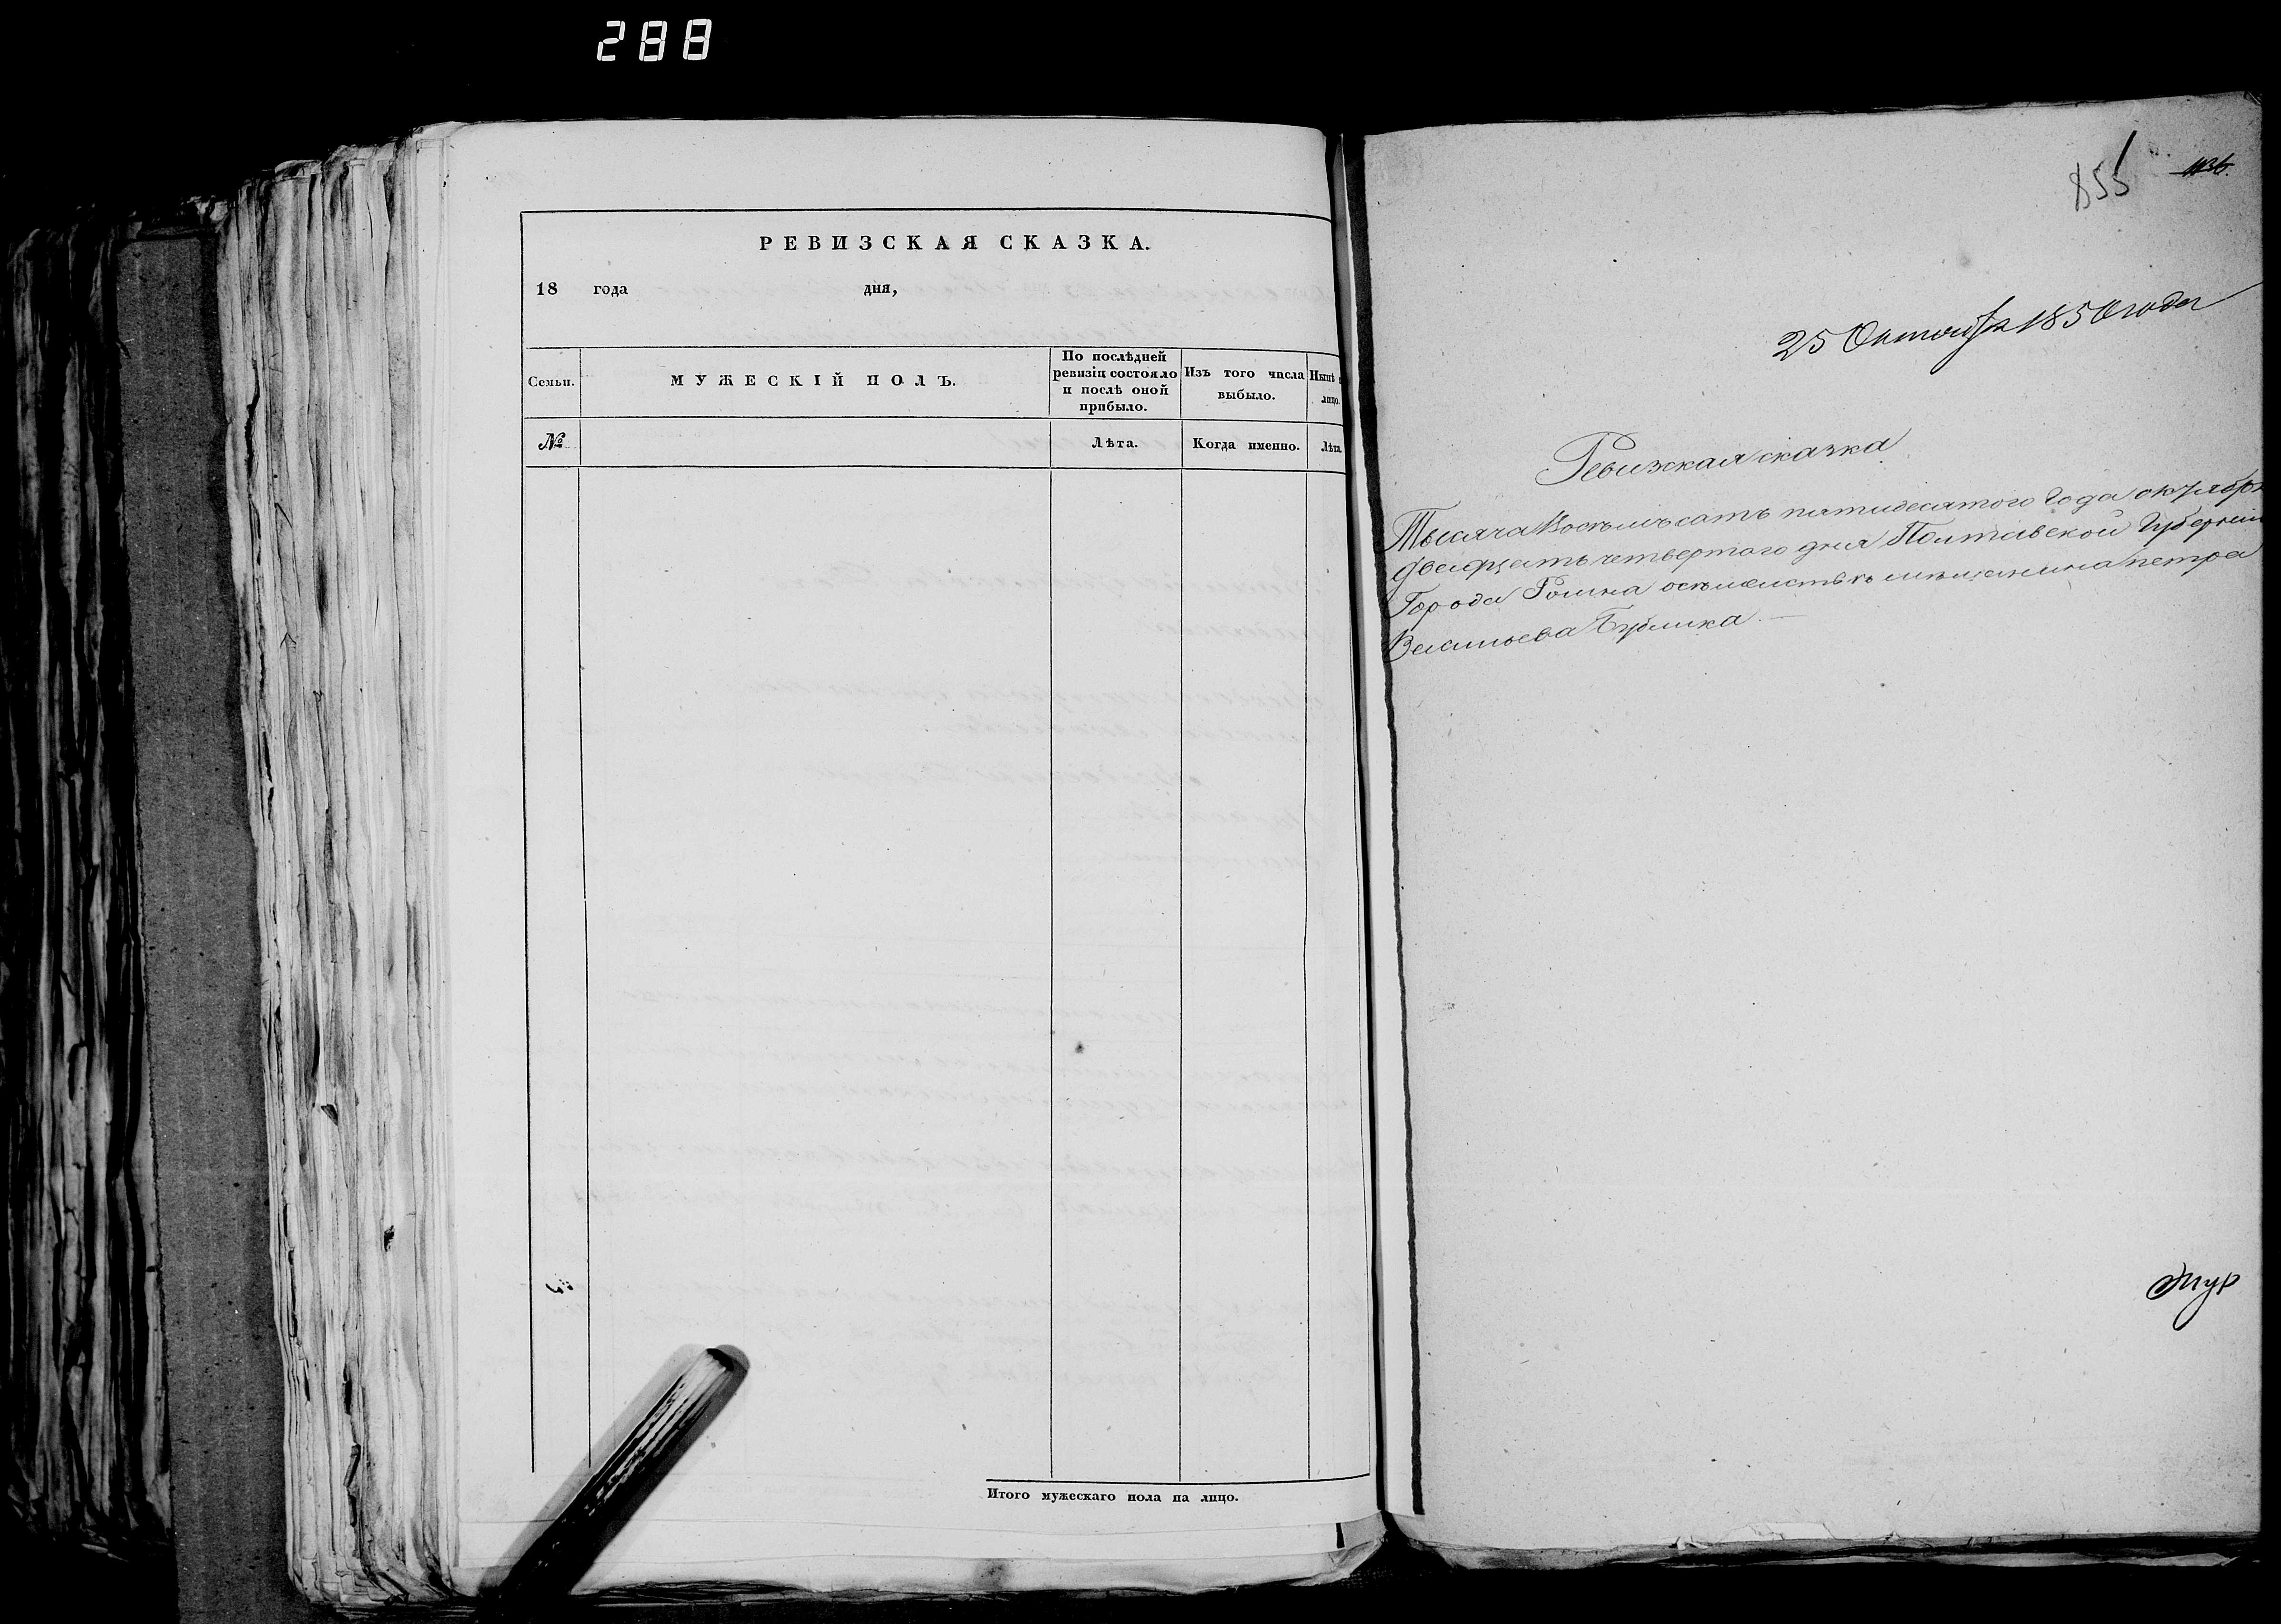 288
РЕВИЗСКАЯ СКАЗКА.
18 года дня,
Семьи.
МУЖЕСКІЙ ПОЛЪ.
По послѣдней
ревизіи состояло
и послѣ оной
прибыло.
Изъ того числа
выбыло.
Нынѣ
лицо.
№
Лѣта.
Когда именно.
Лѣта
Итого мужескаго пола на лицо.
855
25 Октября 1850 года
Ревизкая сказка
Тысяча Восемъсатъ пятидесятого Года октября
двадцать четвертого дня Полтавской Губернии
Города Ромна мещанина петра
Васильева Бублика.